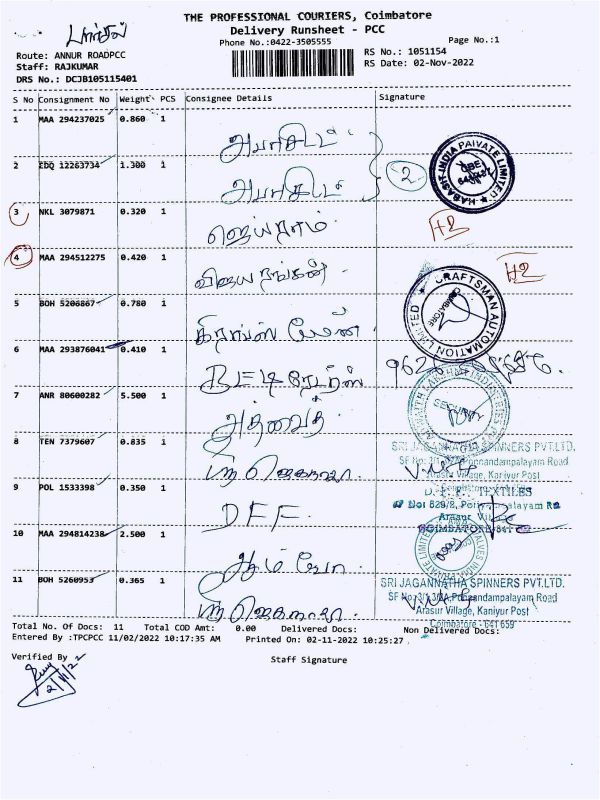 THE PROFESSIONAL COURIERS, Coimbatore
Delivery Runsheet - PCC
Phone No.:0422-3505555
Page No.:1
பார்சல்
Route: ANNUR ROADPCC
RS No.: 1051154
Staff: RAJKUMAR
RS Date: 02-Nov-2022
DRS No.: DCJB105115401
S No Consignment No Weight PCS Consignee Details Signature
1 MAA 294237025 0.860 1
2 IDQ 12263734 1.300 1
2
HABASIT INDIA PRIVATE LIMITED
3 NKL 3079871 0.320 1 ஜெயராம்
H2
4 MAA 294512275 0.420 1
H2
5 BOH 5206867 0.780 1 கிராப்ஸ் மேன்
CRAFTSMAN AUTOMATION LIMITED
COIMBATORE
6 MAA 293876041 0.410 1
7 ANR 80600282 5.500 1 அத்வைத்
SECURITY
8 TEN 7379607 0.835 1 ஸ்ரீ ஜெகநாதா
SRI JAGANNATHA SPINNERS PVT.LTD.
SF No: 3/1,3/3A, Ponnandampalayam Road
Arasur Village, Kaniyur Post
9 POL 1533398 0.350 1 DFF
D. F. F. TEXTILES
10 MAA 294814238 2.500 1
11 BOH 5260953 0.365 1 ஸ்ரீ ஜெகநாதா
SRI JAGANNATHA SPINNERS PVT.LTD.
SF No: 3/1,3/3A, Ponnandampalayam Road
Arasur Village, Kaniyur Post
Coimbatore - 641 659
Total No. Of Docs: 11 Total COD Amt: 0.00 Delivered Docs: Non Delivered Docs:
Entered By :TPCPCC 11/02/2022 10:17:35 AM Printed On: 02-11-2022 10:25:27
Verified By
Staff Signature
2/11/22